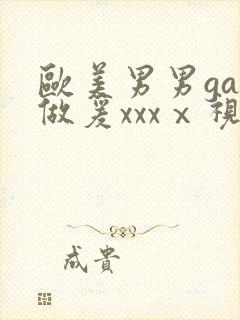 歐美男男ga
做爰xxxⅹ視
成貴